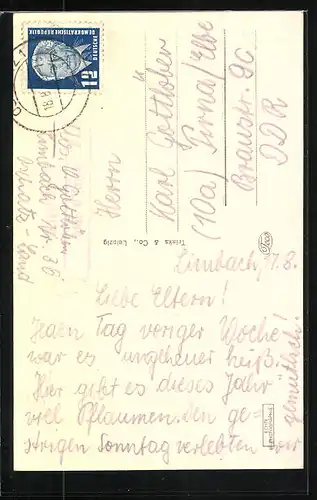 12
DEUTSCHE
DEMOKRATISCHE REPUBLIK
Abs. W. Gottlöber
Limbach Nr. 36
Oschatz-Land
Herrn
Karl Gottlöber
(10a) Pirna/Elbe
Braustr. 9c
DDR
Trinks & Co., Leipzig
Limbach, 1.8.
Liebe Eltern!
Tag voriger Woche
war es ungeheuer heiß.
Hier gibt es dieses Jahr
viel Pflaumen. Den ge=
strigen Sonntag verlebten wir
gemütlich!